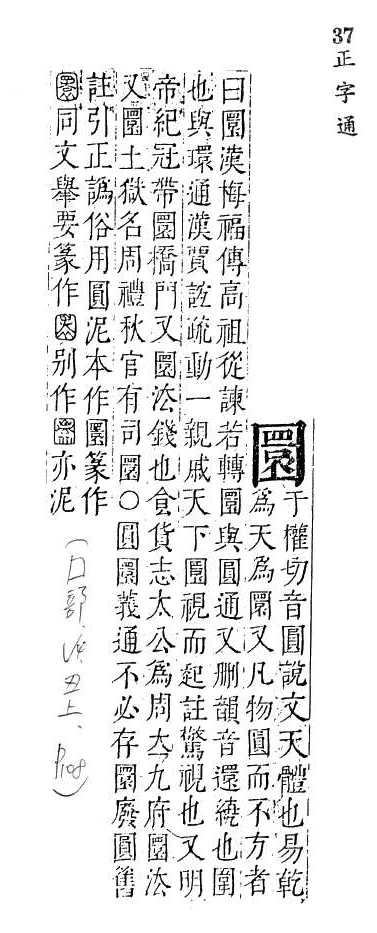 37 正字通
圜
于權切音圓說文天體也易乾
爲天爲圜又凡物圓而不方者
曰圜漢梅福傳高祖從諫若轉圜與圓通又刪韻音還繞也圍
也與環通漢賈誼疏動一親戚天下圜視而起註驚視也又明
帝紀冠帶圜橋門又圜法錢也食貨志太公爲周立九府圜法
又圜土獄名周禮秋官有司圜○圓圜義通不必存圜廢圓舊
註引正譌俗用圓泥本作圜篆作
同文舉要篆作别作亦泥
(口部、丑上、P108)